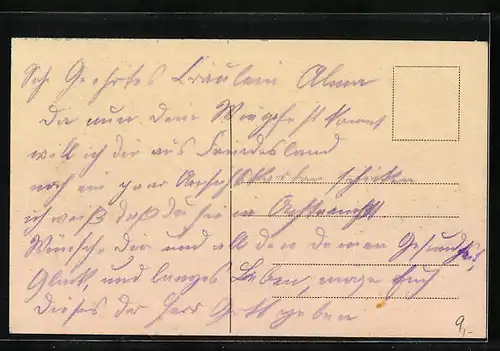 Sehr Geehrtes Fräulein Alma
Da nun Dein Wiegefest kommt
will ich dir aus Feindesland
noch ein paar Ansichtskarten schicken
ich weiß daß du sie in
Wünsche Dir und all den deinen Gesundheit,
Glück, und langes Leben, möge Euch
dieses der Herr Gott geben
9,-